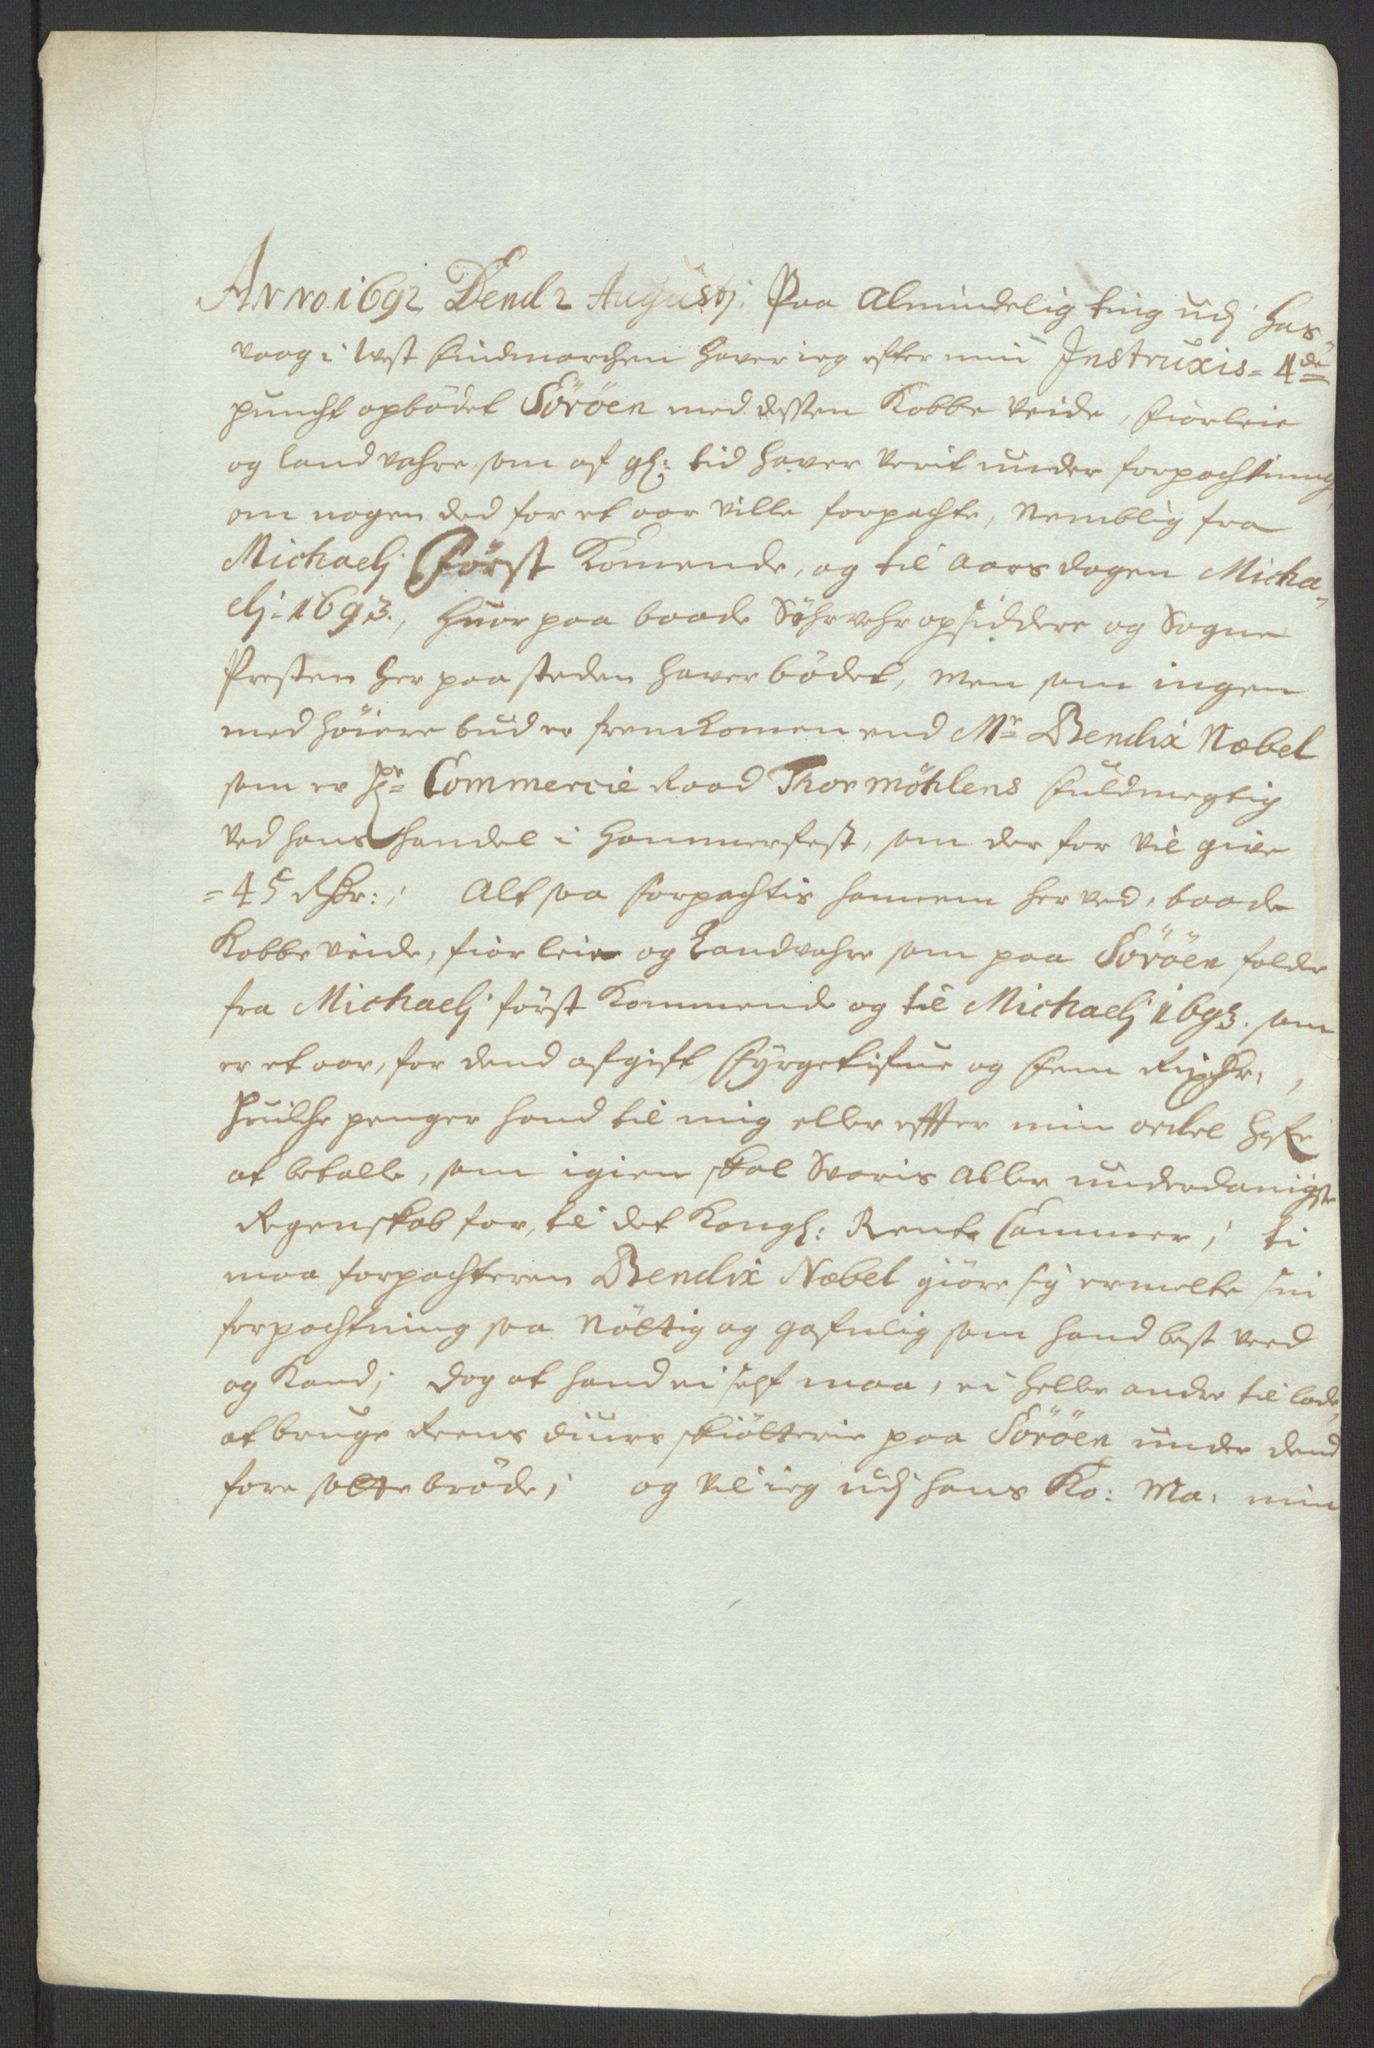 Anno 1692 Dend 2 Augustj: Paa Almindelig ting udj Has-
vaag i West Findmarchen haver ieg efter min Instruxis = 4de
puncht opbödet Söröen med desten Kobbe Veide, fiörleie
og land vahre, som af gl: tid haver verit under forpachtning,
om nogen ded for et aar ville forpachte, Nemblig fra
Michaelj Först Komende, og til aars dagen Micha-
elj: 1693., Huor paa baade Söhrvehr opsiddere og Sogne
Presten her paa steden haver bödet, Men som ingen
med höiere bud er fremkomen end Mr Bendix Næbel
som er Hr Commercie Raad Thormöhlens Fuldmegtig
ved hans handel i Hammerfest, som der for vil give
= 45 Rdr:, Alt saa forpachtis hannem her ved, baade
Kobbe veide, fiör leie og Landvahre som paa Söröen falder
fra Michaelj först Kommende og til Michaelj 1693. som
er et aar, for dend afgift Fyrgetifue og Fem Rixdr.,
Huilche penger hand til mig eller effter min ordre
at betalle, som igien skal Svaris aller underdanigste
Regenskab for, til det Kongl: Rente Cammer, ti
maa forpachteren Bendix Næbel giöre sig ermelte sin
forpachtning saa Nöttig og gafnlig som hand best veed
og Kand; Dog at hand ei self maa, ei heller andre til lade,
at bruge Reens diurs skiötterie paa Söröen under dend
fore satte bröde; og vil ieg udj hans Ko: Ma: min